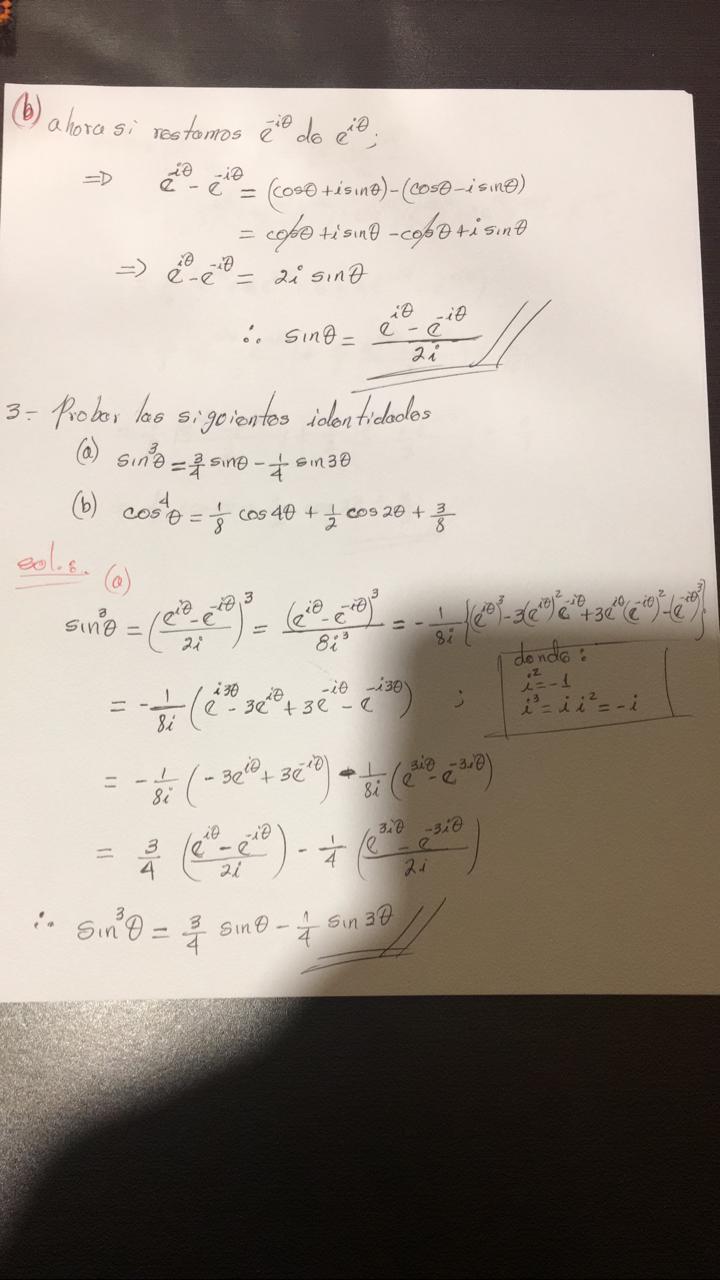 (b) ahora si restamos e^{-iθ} de e^{iθ};
⇒ e^{iθ} - e^{-iθ} = (cosθ + i sinθ) - (cosθ - i sinθ)
= cosθ + i sinθ - cosθ + i sinθ
⇒ e^{iθ} - e^{-iθ} = 2i sinθ
∴ sinθ = \frac{e^{iθ} - e^{-iθ}}{2i}
3- Probar las sigoientes identidades
(a) sin³θ = \frac{3}{4} sinθ - \frac{1}{4} sin3θ
(b) cos⁴θ = \frac{1}{8} cos4θ + \frac{1}{2} cos2θ + \frac{3}{8}
sol.s. (a)
sin³θ = (\frac{e^{iθ} - e^{-iθ}}{2i})^3 = \frac{(e^{iθ} - e^{-iθ})^3}{8i^3} = -\frac{1}{8i} {(e^{iθ})^3 - 3(e^{iθ})^2 e^{-iθ} + 3e^{iθ}(e^{-iθ})^2 - (e^{-iθ})^3}
donde:
i² = -1
i³ = i i² = -i
= -\frac{1}{8i} (e^{i3θ} - 3e^{iθ} + 3e^{-iθ} - e^{-i3θ}) ;
= -\frac{1}{8i} (-3e^{iθ} + 3e^{-iθ}) - \frac{1}{8i} (e^{3iθ} - e^{-3iθ})
= \frac{3}{4} (\frac{e^{iθ} - e^{-iθ}}{2i}) - \frac{1}{4} (\frac{e^{3iθ} - e^{-3iθ}}{2i})
∴ sin³θ = \frac{3}{4} sinθ - \frac{1}{4} sin3θ